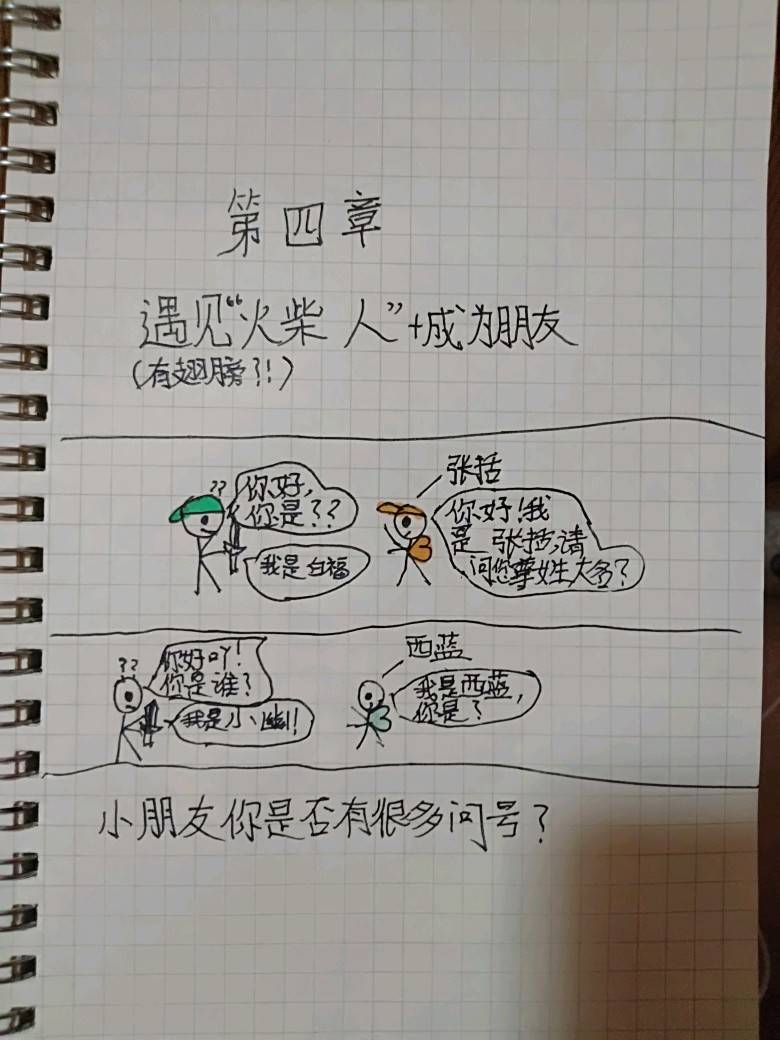 第四章
遇见“火柴人”+成为朋友
(有翅膀?!)
??
你好,
你是??
我是白福
张括
你好!我
是张括,请
问您尊姓大名?
??
你好吖!
你是谁?
我是小幽!
西蓝
我是西蓝,
你是?
小朋友你是否有很多问号?